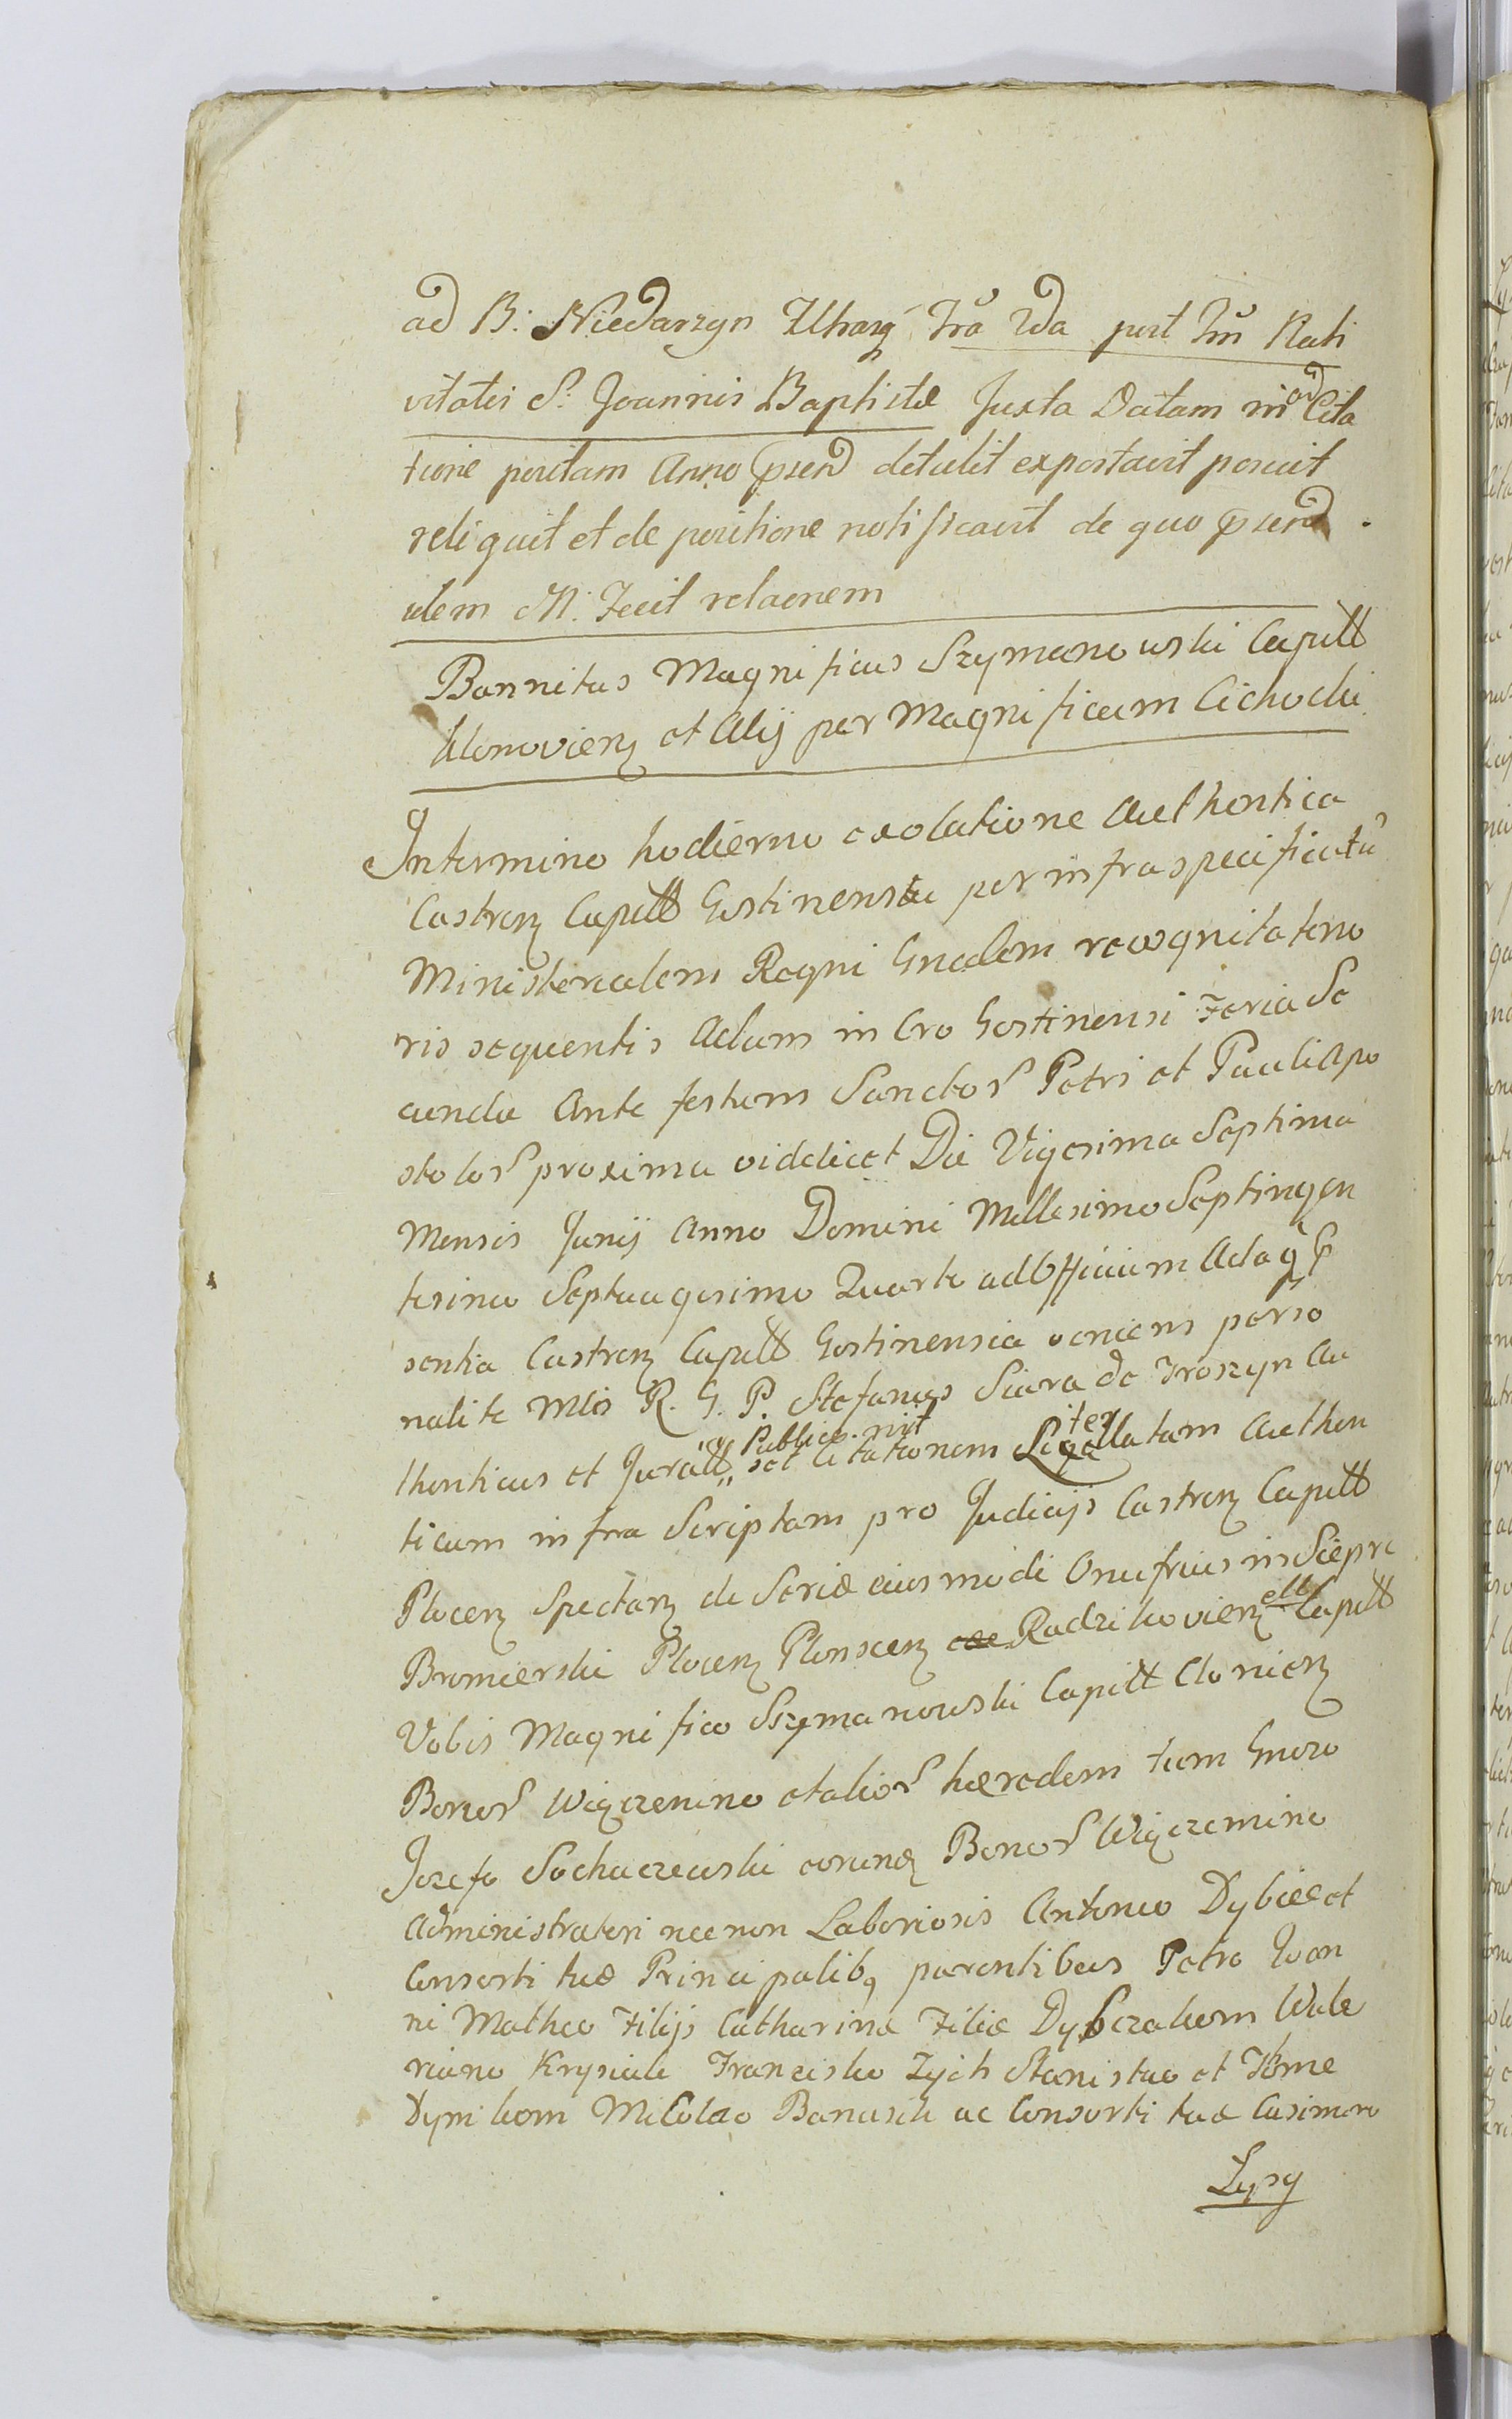 ad B: Niedarzyn Fra 2da post Fm Nati
vitatis S: Joannis Baptistæ Juxta Datam in ad Cita
tione positam Anno psend detulit exportavit posuit
reliquit et de positione notificavit de quo psend
idem M: Fecit relaonem
Bannitus Magnificus Szymanowski Capitt
Klonovien et Alij per Magnificum Cichocki
In termino hodierno ex olatione Authentica
Castren Capitt Gostinensia per infraspecificatũ
Ministerialem Regni Gnalem recognita teno
ris sequentis Actum in Cro Gostinensi Feria Se
cunda Ante festum Sanctor Petri et Pauli Apo
stolor proxima videlicet Die Vigesima Septima
Mensis Junij Anno Domini Millesimo Septingen
tesimo Septuagesimo Quarto ad Officium Actaq p
sentia Castren Capitt Gostinensia veniens perso
nalite Mlis R. G. P. Stefanus Siera de Troszyn Au
thenticus et Juratt q Publics. nit set Citationem Ligatter tam Authen
ticam infra Scriptam pro Judicijs Castren Capitt
Plocen Spectan de Serie eiusmodi Onufrius in Siepre
Bromierski Plocen Plonscen Radzikovien ett Capitt
Vobis Magnifico Szymanowski Capitt Clonien
Bonor Wiączemino et alior hæredem tum Gnoro
Jozefo Sochaczewski eorund Bonor Wiączemino
Administratori necnon Laboriosis Antonio Dybiec et
Consorti tuæ Principalibq parentibus Petro Joan
ni Matheo Filijs Catharinæ Filiæ Dybczakom Wale
riano Krysiak Francisko Zych Stanislao et Tome
Dymkom Micolao Banasik ac Consorti tuæ Casimiro
Lysy